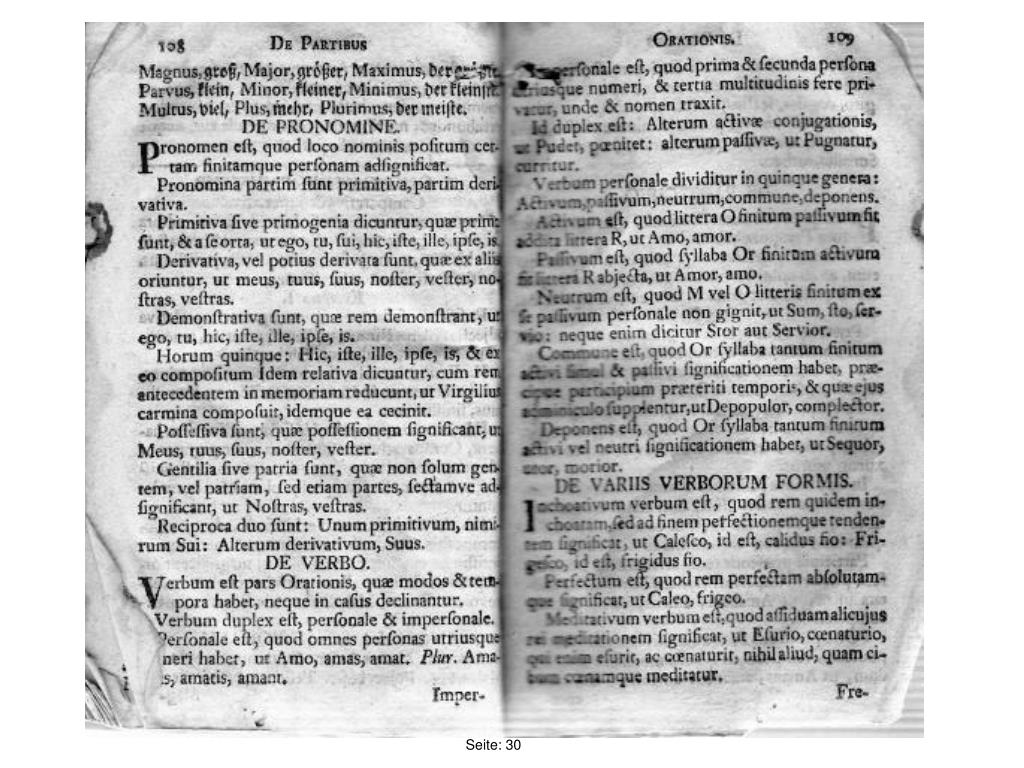 108 DE PARTIBUS
Magnus, groß, Major, größer, Maximus, der größte.
Parvus, klein, Minor, kleiner, Minimus, der kleinste
Multus, viel, Plus, mehr, Plurimus, der meiste.
DE PRONOMINE.
Pronomen eſt, quod loco nominis poſitum cer-
tam finitamque perſonam adſignificat.
Pronomina partim ſunt primitiva, partim deri-
vativa.
Primitiva ſive primogenia dicuntur, quæ prima
ſunt, & a ſe orta, ut ego, tu, ſui, hic, iſte, ille, ipſe, is.
Derivativa, vel potius derivata ſunt, quæ ex aliis
oriuntur, ut meus, tuus, ſuus, noſter, veſter, no-
ſtras, veſtras.
Demonſtrativa ſunt, quæ rem demonſtrant, ut
ego, tu, hic, iſte, ille, ipſe, is.
Horum quinque: Hic, iſte, ille, ipſe, is, & ex
eo compoſitum Idem relativa dicuntur, cum rem
antecedentem in memoriam reducunt, ut Virgilius
carmina compoſuit, idemque ea cecinit.
Poſſeſſiva ſunt, quæ poſſeſſionem ſignificant, ut
Meus, tuus, ſuus, noſter, veſter.
Gentilia ſive patria ſunt, quæ non ſolum gen-
tem, vel patriam, ſed etiam partes, ſectamve ad-
ſignificant, ut Noſtras, veſtras.
Reciproca duo ſunt: Unum primitivum, nimi-
rum Sui: Alterum derivativum, Suus.
DE VERBO.
Verbum eſt pars Orationis, quæ modos & tem-
pora habet, neque in caſus declinantur.
Verbum duplex eſt, perſonale & imperſonale.
Perſonale eſt, quod omnes perſonas utriusque
neri habet, ut Amo, amas, amat. Plur. Ama-
s, amatis, amant.
Imper-
ORATIONIS. 109
perſonale eſt, quod prima & ſecunda perſona
utriusque numeri, & tertia multitudinis fere pri-
vatur, unde & nomen traxit.
Id duplex eſt: Alterum activæ conjugationis,
ut Pudet, pœnitet: alterum paſſivæ, ut Pugnatur,
curritur.
Verbum perſonale dividitur in quinque genera:
Activum, paſſivum, neutrum, commune, deponens.
Activum eſt, quod littera O finitum paſſivum fit
addita littera R, ut Amo, amor.
Paſſivum eſt, quod ſyllaba Or finitum activum
fit littera R abjecta, ut Amor, amo.
Neutrum eſt, quod M vel O litteris finitum ex
ſe paſſivum perſonale non gignit, ut Sum, ſto, ſer-
vio: neque enim dicitur Stor aut Servior.
Commune eſt, quod Or ſyllaba tantum finitum
activi ſimul & paſſivi ſignificationem habet, præ-
cipue participium præteriti temporis, & quæ ejus
adminiculo ſupplentur, ut Depopulor, complector.
Deponens eſt, quod Or ſyllaba tantum finitum
activi vel neutri ſignificationem habet, ut Sequor,
utor, morior.
DE VARIIS VERBORUM FORMIS.
Inchoativum verbum eſt, quod rem quidem in-
choatam, ſed ad finem perfectionemque tenden-
tem ſignificat, ut Caleſco, id eſt, calidus fio: Fri-
geſco, id eſt, frigidus fio.
Perfectum eſt, quod rem perfectam abſolutam-
que ſignificat, ut Caleo, frigeo.
Meditativum verbum eſt, quod aſſiduam alicujus
rei meditationem ſignificat, ut Eſurio, cœnaturio,
qui enim eſurit, ac cœnaturit, nihil aliud, quam ci-
bum cœnamque meditatur.
Fre-
Seite: 30